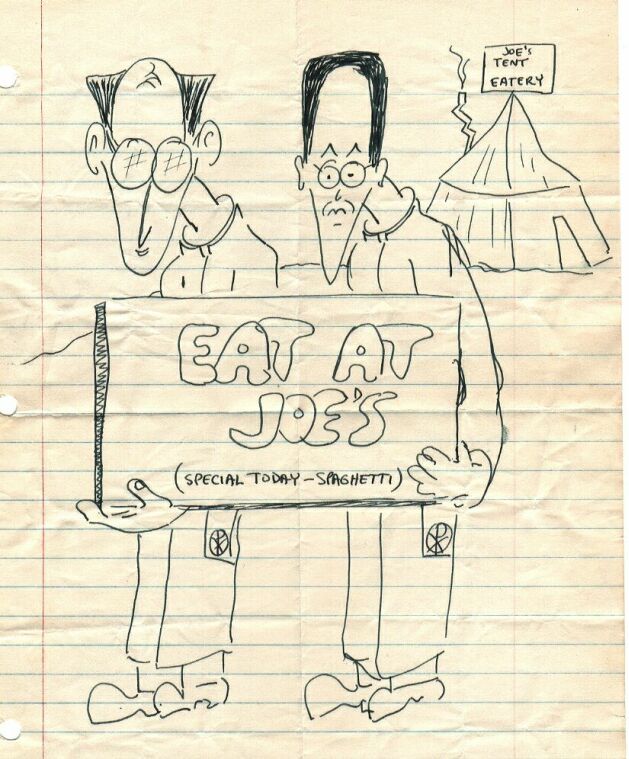 JOE'S
TENT
EATERY
EAT AT
JOE'S
(SPECIAL TODAY – SPAGHETTI)